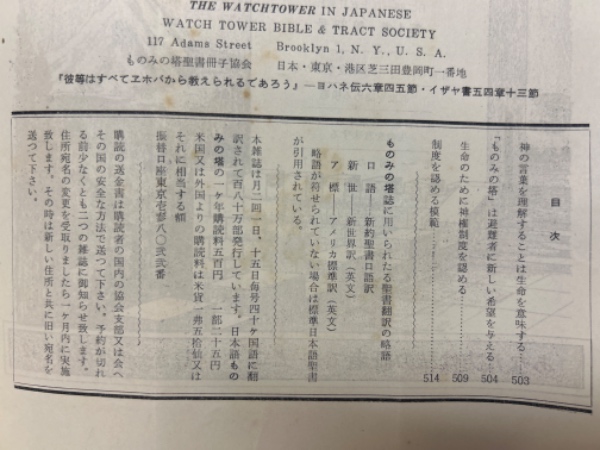 THE WATCHTOWER IN JAPANESE
WATCH TOWER BIBLE & TRACT SOCIETY
117 Adams Street Brooklyn 1, N. Y., U. S. A.
ものみの塔聖書冊子協会 日本・東京・港区芝三田豊岡町一番地
『彼等はすべてヱホバから教えられるであろう』―ヨハネ伝六章四五節・イザヤ書五四章十三節
目次
神の言葉を理解することは生命を意味する……503
「ものみの塔」は避難者に新しい希望を与える…504
生命のために神権制度を認める……509
制度を認める模範……514
ものみの塔誌に用いられたる聖書翻訳の略語
口語 新約聖書口語訳
新世 新世界訳(英文)
ア標―アメリカ標準訳(英文)
略語が符せられていない場合は標準日本語聖書
が引用されている。
本雑誌は月二回一日、十五日毎号四十ヶ国語に翻
訳されて百八十万部発行しています。日本語もの
みの塔の一ケ年購読料五百円 一部二十五円
米国又は外国よりの購読料は米貨一弗五拾仙又は
それに相当する額
振替口座東京壱参八〇弐弐番
購読の送金書は購読者の国内の協会支部又は会へ
その国の安全な方法で送つて下さい。予約が切れ
る前少なくとも二つの雑誌に御知らせ致します。
住所宛名の変更を受取りましたら一ヶ月内に実施
致します。その時は新しい住所と共に旧い宛名を
送つて下さい。